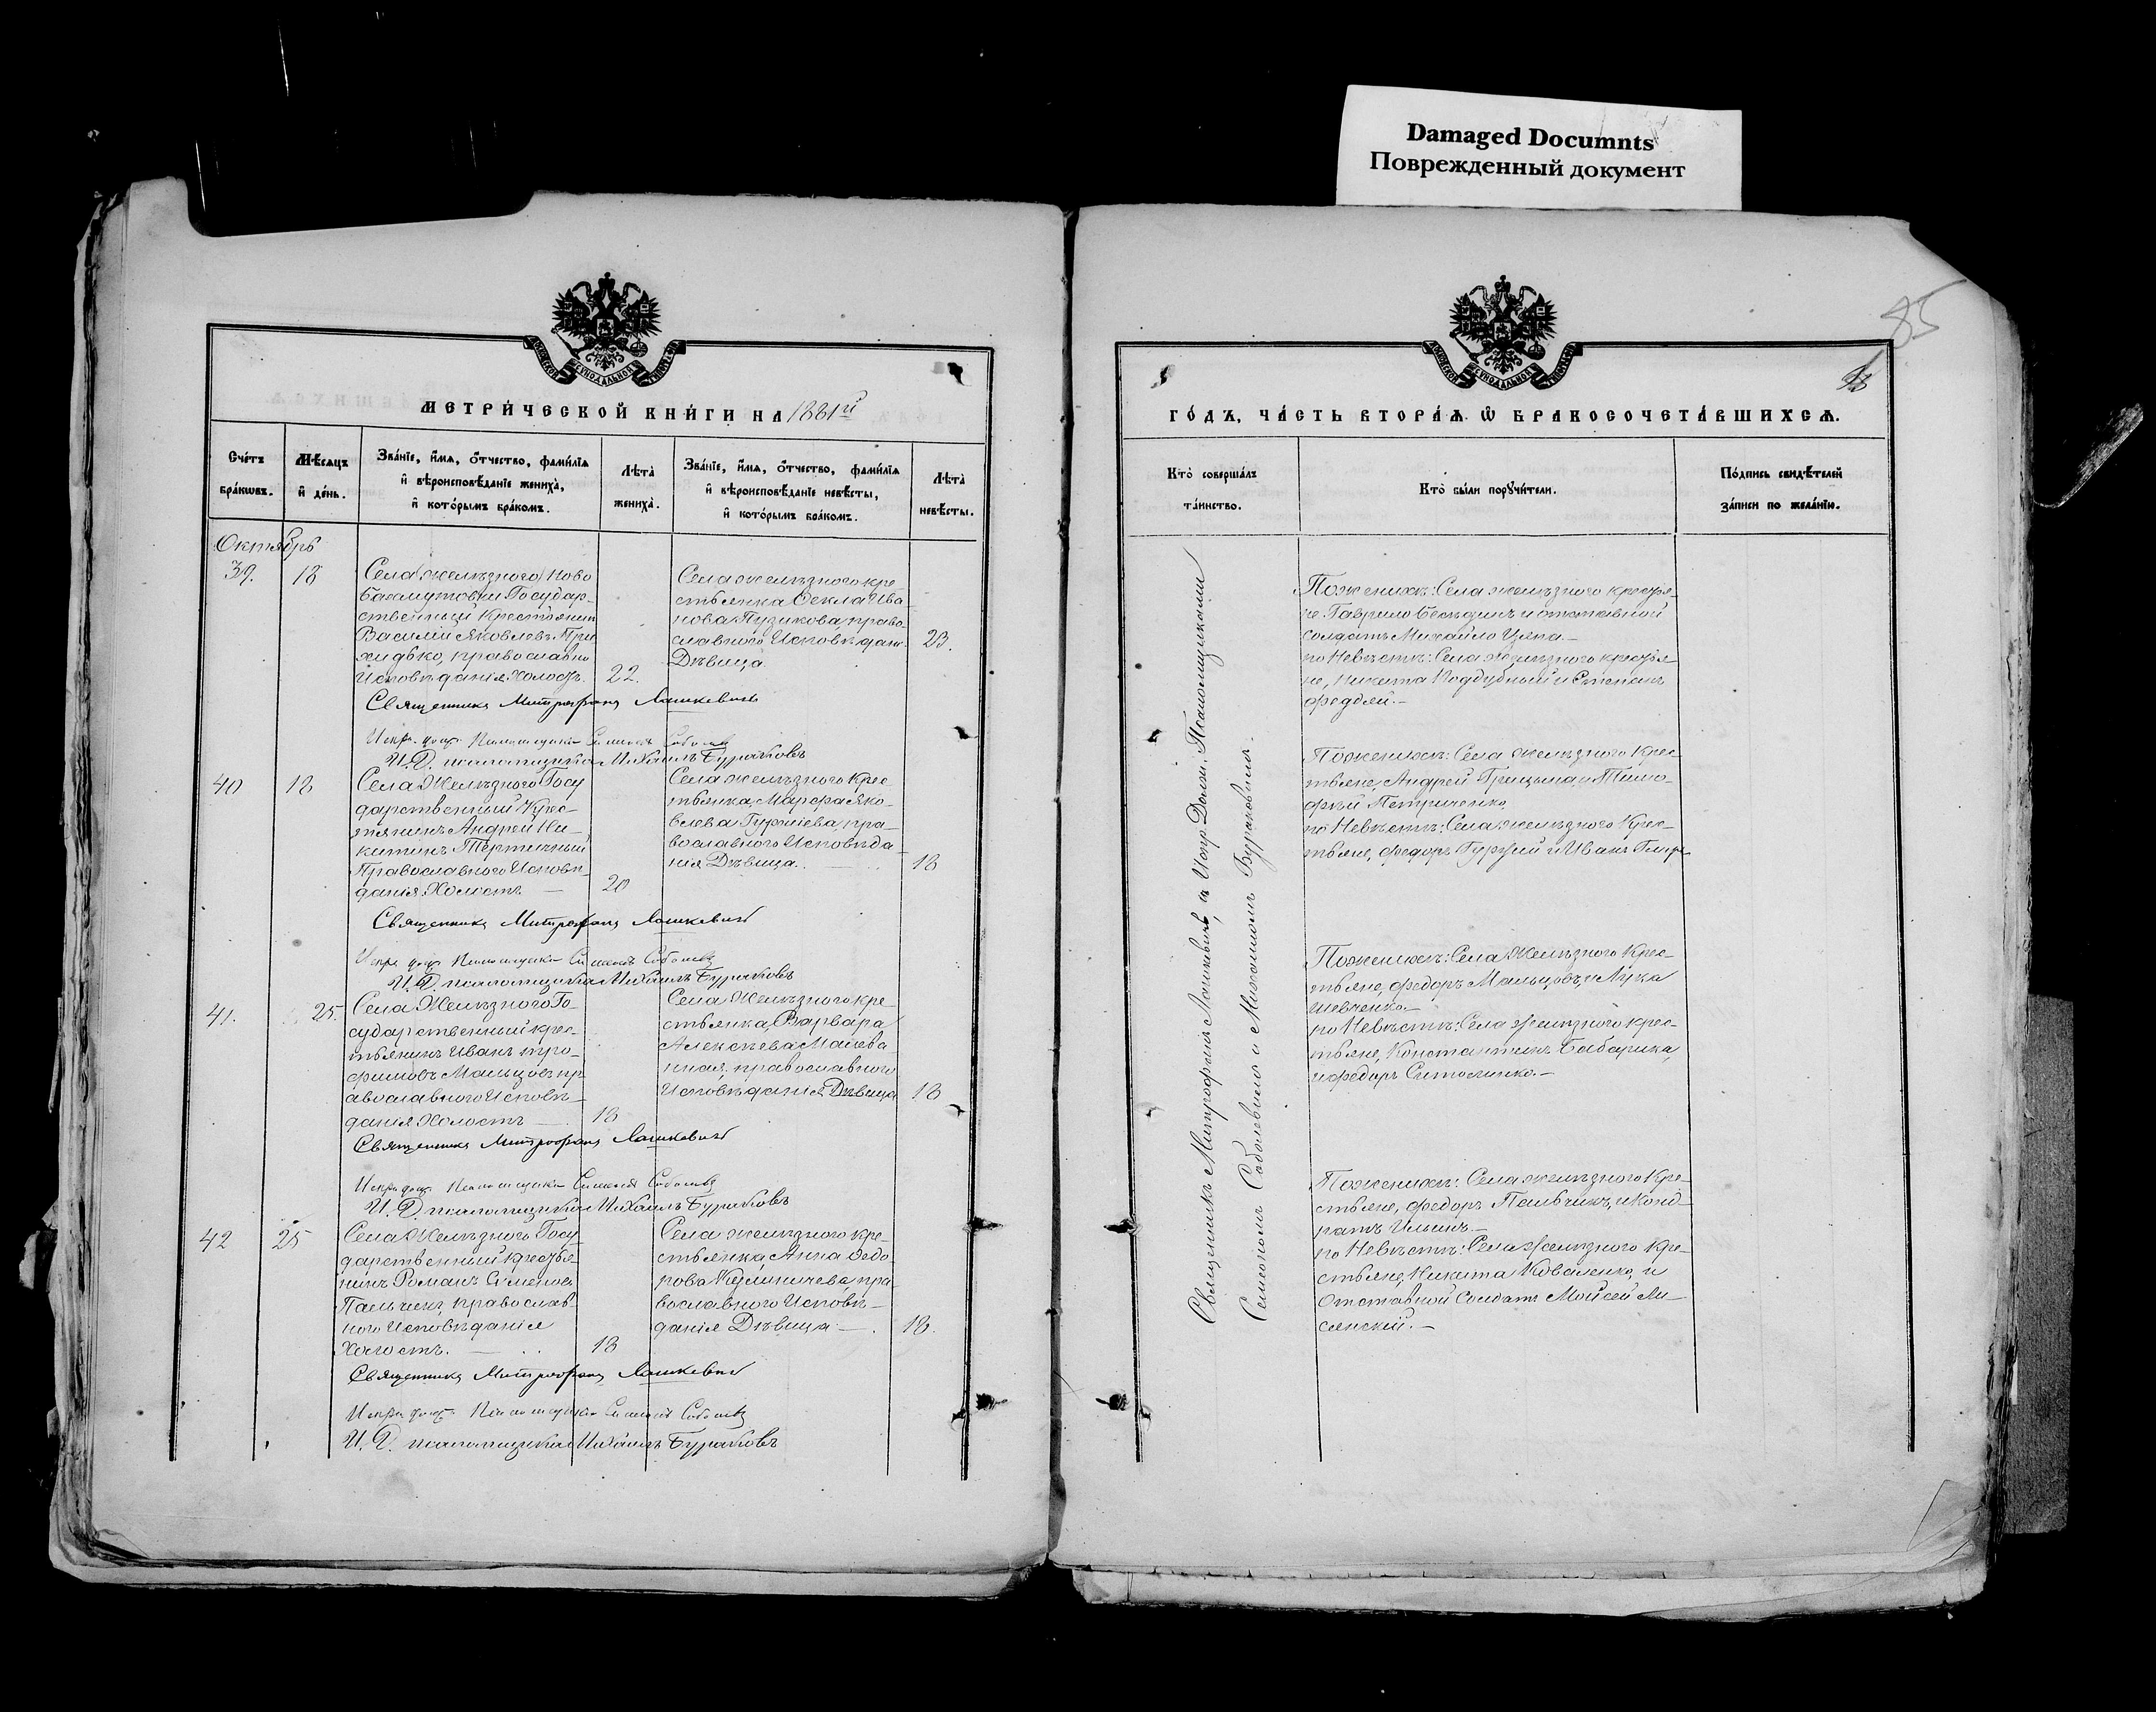 Damaged Documnts
Поврежденный документ
85
МОСКОВСКОЙ СУНОДАЛЬНОЙ ТИПОГРАФІИ
МЕТРИ́ЧЕСКОЙ КНИ́ГИ НА 1881й
Сче́тъ бра́кωвъ.
Мѣ́сяцъ и҆ де́нь.
Зва́нїе, и҆́мѧ, ѻ҆́тчество, фами́лїѧ и҆ вѣроисповѣ́данїе жениха̀, и҆ кото́рымъ бра́комъ.
Лѣ́та̀ жениха̀.
Зва́нїе, и҆́мѧ, ѻ҆́тчество, фами́лїѧ и҆ вѣроисповѣ́данїе невѣ́сты, и҆ кото́рымъ бра́комъ.
Лѣ́та̀ невѣ́сты.
Октябрь
39.
18
Села (желѣзного) Ново
бахмутовки Государ-
ственный Крестьянин
Василій Яковлевъ При
ходько, православно
Исповѣданія. Холостъ.
22.
Села желѣзного кре
стьянка Ѳекла Ива
нова Пузикова, право
славного Исповѣдані
Дѣвица.
23.
Священникъ Митрофанъ Лашкевичъ
И.Д. псаломщика Михаилъ Бураковъ
40
18
Села Желѣзного Госу
дарственный Крес-
тянинъ Андрей Ни-
китинъ Тертичный
Православного Исповѣ-
данія. Холостъ. —
20
Села желѣзного Крес
тьянка, Марфа Яко-
влева Гуржіева, пра-
вославного Исповѣда
нія Дѣвица.
18
Священникъ Митрофанъ Лашкевичъ
И.Д. псаломщика Михаилъ Бураковъ
41.
25.
Села Желѣзного Го-
сударственный крес-
тьянинъ Иванъ тро-
фимовъ Мальцовъ пр
авославного Исповѣ-
данія Холостъ — .
18
Села Желѣзного кре-
стьянка, Варвара
Алексѣева
православного
Исповѣданія Дѣвица
18
Священникъ Митрофанъ Лашкевичъ
И.Д. псаломщика Михаилъ Бураковъ
42
25
Села Желѣзного Госу-
дарственный Крестья-
нинъ Романъ Семеновъ
Пальчикъ, православ-
ного Исповѣданія
Холостъ. —
18
Села желѣзного кре-
стьянка, Анна Ѳедо
рова Калиничева пра
вославного Исповѣ-
данія Дѣвица — .
18.
Священникъ Митрофанъ Лашкевичъ
И.Д. псаломщика Михаилъ Бураковъ
МОСКОВСКОЙ СУНОДАЛЬНОЙ ТИПОГРАФІИ
ГО́ДЪ, ЧА́СТЬ ВТОРА́Ѧ Ѽ БРАКОСОЧЕТА́ВШИХСѦ.
Кто̀ соверша́лъ та́инство.
Кто̀ бы́ли порꙋчи́тели.
По́дпись свидѣ́телей за́писи по жела́нїю.
Священникъ Митрофанъ Лашкевичъ, съ Испр. Долж. Псаломщиками
Семеономъ Соболевымъ и Михаиломъ Бураковымъ.
По женихѣ: Села желѣзного крестья-
не Гаврило и отставной
солдатъ Михайло Цяпа. —
по Невѣстѣ: Села желѣзного крестья-
не, Никита Поддубный и Степанъ
федяй. —
По женихѣ: Села желѣзного Крес-
тьяне, Андрей Грицына, и Тимо-
фѣй Петриченко,
по Невѣстѣ: Села желѣзного Крес-
тьяне, федоръ Гуржій и Иванъ
По женихѣ: Села Желѣзного Крес-
тьяне, федоръ Мальцовъ, и Лука
Шевченко. —
по Невѣстѣ: Села желѣзного крес-
тьяне, Константинъ Бабарика,
и федоръ Ситолинко. —
По женихѣ: Села желѣзного Кре-
стьяне, федоръ Пальчикъ, и Конд-
ратъ Ильинъ. —
по Невѣстѣ: Села Желѣзного Кре-
стьяне, Никита Коваленко, и
Отставной Солдатъ Мойсей Ли-
сянскій. —